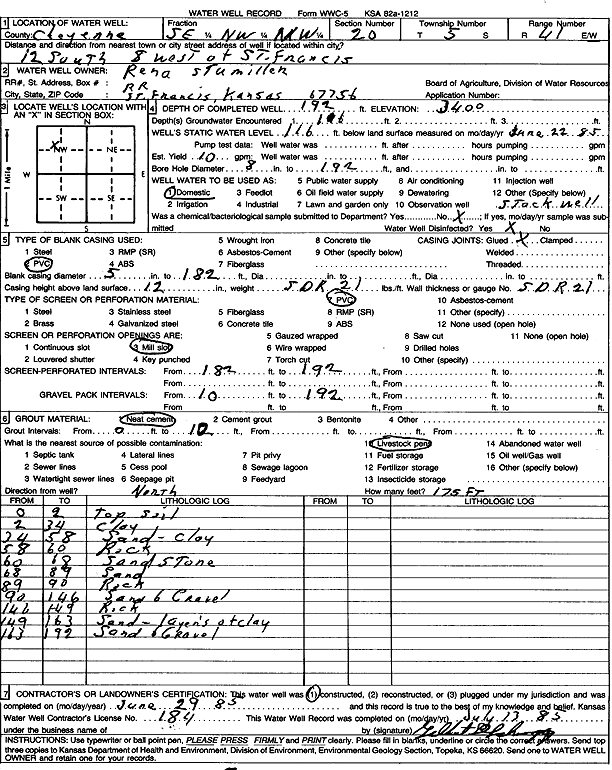 WATER WELL RECORD Form WWC-5 KSA 82a-1212
1 LOCATION OF WATER WELL: Fraction Section Number Township Number Range Number
County: Cheyenne SE ¼ NW ¼ NW ¼ 20 T 5 S R 41 E/W
Distance and direction from nearest town or city street address of well if located within city?
12 South 8 west of St. Francis
2 WATER WELL OWNER: Rena Stumiller
RR#, St. Address, Box # : RR Board of Agriculture, Division of Water Resources
City, State, ZIP Code : St. Francis, Kansas 67756 Application Number:
3 LOCATE WELL'S LOCATION WITH AN "X" IN SECTION BOX: 4 DEPTH OF COMPLETED WELL 192 ft. ELEVATION: 3400
Depth(s) Groundwater Encountered 1. 116 ft. 2. ft. 3. ft.
WELL'S STATIC WATER LEVEL 116 ft. below land surface measured on mo/day/yr June 22 85
Pump test data: Well water was ft. after hours pumping gpm
Est. Yield 10 gpm: Well water was ft. after hours pumping gpm
Bore Hole Diameter 8 in. to 192 ft., and in. to ft.
N
NW NE
W E
SW SE
S
1 Mile
WELL WATER TO BE USED AS: 5 Public water supply 8 Air conditioning 11 Injection well
1 Domestic 3 Feedlot 6 Oil field water supply 9 Dewatering 12 Other (Specify below)
2 Irrigation 4 Industrial 7 Lawn and garden only 10 Observation well Stock well
Was a chemical/bacteriological sample submitted to Department? Yes No X; If yes, mo/day/yr sample was submitted
Water Well Disinfected? Yes X No
5 TYPE OF BLANK CASING USED: 5 Wrought iron 8 Concrete tile CASING JOINTS: Glued X Clamped
1 Steel 3 RMP (SR) 6 Asbestos-Cement 9 Other (specify below) Welded
2 PVC 4 ABS 7 Fiberglass Threaded
Blank casing diameter 5 in. to 182 ft., Dia in. to ft., Dia in. to ft.
Casing height above land surface 12 in., weight SDR 21 lbs./ft. Wall thickness or gauge No. SDR 21
TYPE OF SCREEN OR PERFORATION MATERIAL: 7 PVC 10 Asbestos-cement
1 Steel 3 Stainless steel 5 Fiberglass 8 RMP (SR) 11 Other (specify)
2 Brass 4 Galvanized steel 6 Concrete tile 9 ABS 12 None used (open hole)
SCREEN OR PERFORATION OPENINGS ARE: 5 Gauzed wrapped 8 Saw cut 11 None (open hole)
1 Continuous slot 3 Mill slot 6 Wire wrapped 9 Drilled holes
2 Louvered shutter 4 Key punched 7 Torch cut 10 Other (specify)
SCREEN-PERFORATED INTERVALS: From 182 ft. to 192 ft., From ft. to ft.
From ft. to ft., From ft. to ft.
GRAVEL PACK INTERVALS: From 10 ft. to 192 ft., From ft. to ft.
From ft. to ft., From ft. to ft.
6 GROUT MATERIAL: 1 Neat cement 2 Cement grout 3 Bentonite 4 Other
Grout Intervals: From 0 ft. to 10 ft., From ft. to ft., From ft. to ft.
What is the nearest source of possible contamination: 10 Livestock pens 14 Abandoned water well
1 Septic tank 4 Lateral lines 7 Pit privy 11 Fuel storage 15 Oil well/Gas well
2 Sewer lines 5 Cess pool 8 Sewage lagoon 12 Fertilizer storage 16 Other (specify below)
3 Watertight sewer lines 6 Seepage pit 9 Feedyard 13 Insecticide storage
Direction from well? North How many feet? 175 FT
FROM TO LITHOLOGIC LOG FROM TO LITHOLOGIC LOG
0 2 Top Soil
2 34 Clay
34 58 Sand - Clay
58 60 Rick
60 68 Sand Stone
68 89 Sand
89 90 Rick
90 146 Sand & Gravel
146 149 Rick
149 163 Sand - layers of clay
163 192 Sand & Gravel
7 CONTRACTOR'S OR LANDOWNER'S CERTIFICATION: This water well was (1) constructed, (2) reconstructed, or (3) plugged under my jurisdiction and was
completed on (mo/day/year) June 29 85 and this record is true to the best of my knowledge and belief. Kansas
Water Well Contractor's License No. 184 This Water Well Record was completed on (mo/day/yr) July 13 85
under the business name of by (signature)
INSTRUCTIONS: Use typewriter or ball point pen, PLEASE PRESS FIRMLY and PRINT clearly. Please fill in blanks, underline or circle the correct answers. Send top
three copies to Kansas Department of Health and Environment, Division of Environment, Environmental Geology Section, Topeka, KS 66620. Send one to WATER WELL
OWNER and retain one for your records.